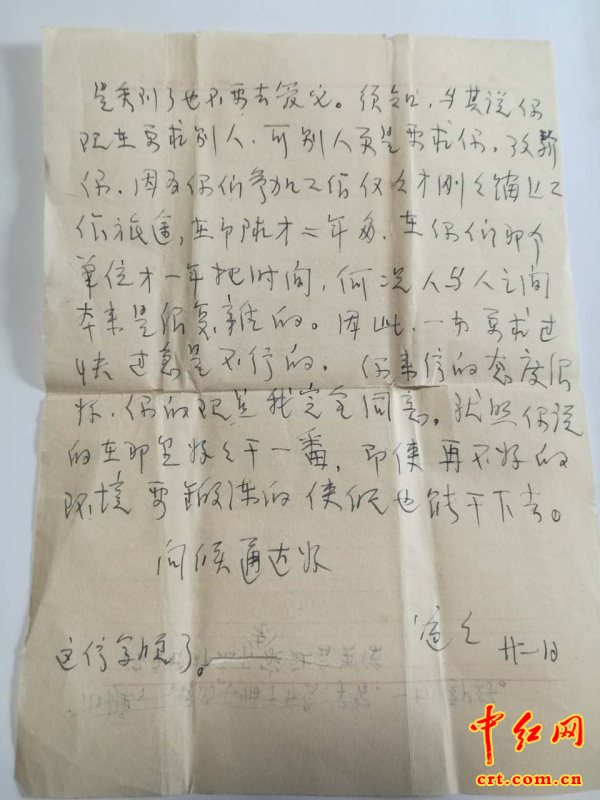 也不要去管它。须知,与其说你
现在要求别人,可别人更是要求你,
你。因为你们参加工作仅仅才刚刚踏上工
作旅途,在部队才二年多,在你们那个
单位才一年把时间,何况人与人之间
本来是很复杂的。因此,一切要求过
快过急是不行的。你来信的态度很
好,你的现点我完全同意。就照你说
的在那里好好干一番,即使再不好的
环境要锻炼的使能也能干下去。
问候通达好
这信字
廿一日
中红网
crt.com.cn